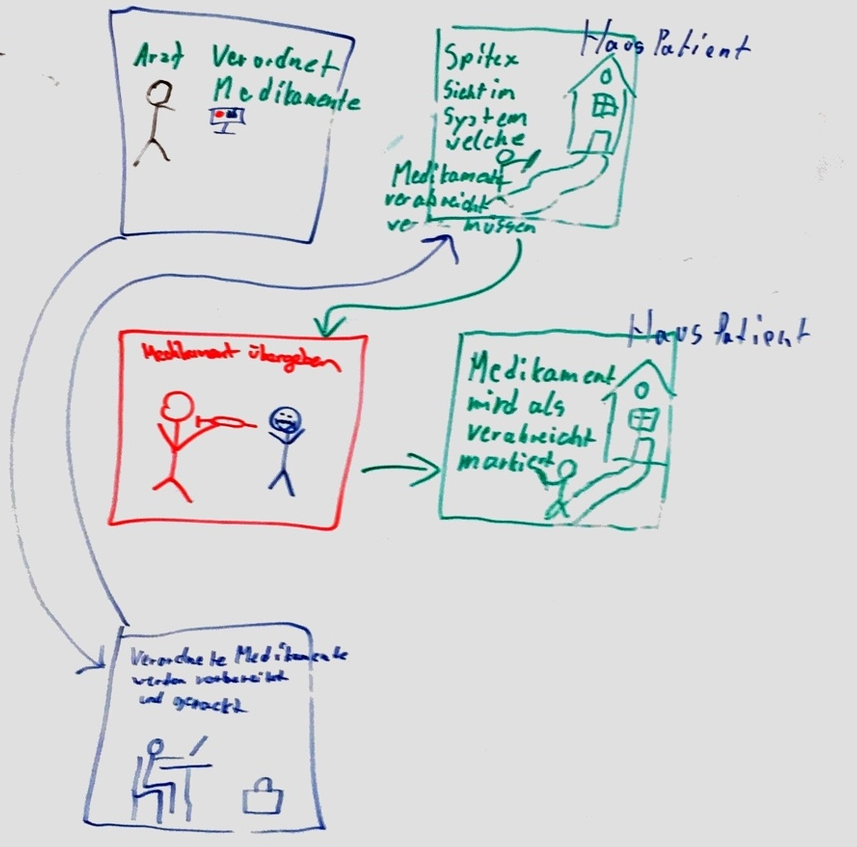 Arzt Verordnet
Medikamente
Haus Patient
Spitex
Sieht in
System
welche
Medikament
verabreicht
müssen
Medikament übergeben
Haus Patient
Medikament
wird als
verabreicht
markiert
Verordnete Medikamente
werden vorbereitet
und gepackt